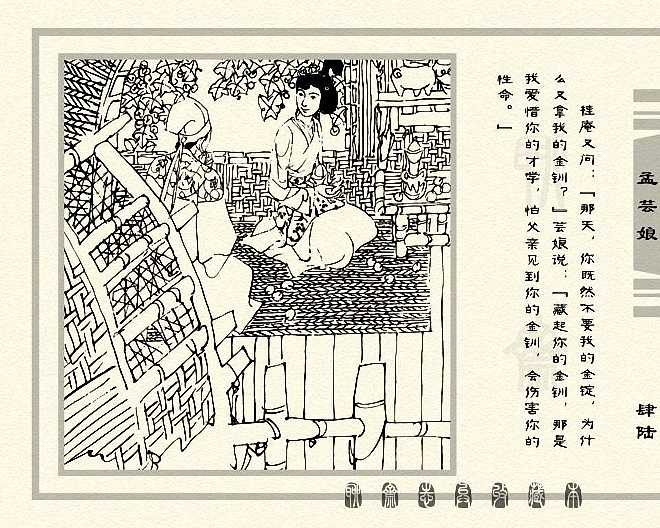 桂庵又问：『那天，你既然不要我的金锭，为什
么又拿我的金钏？』芸娘说：『藏起你的金钏，那是
我爱惜你的才学，怕父亲见到你的金钏，会伤害你的
性命。』
孟芸娘
肆陆